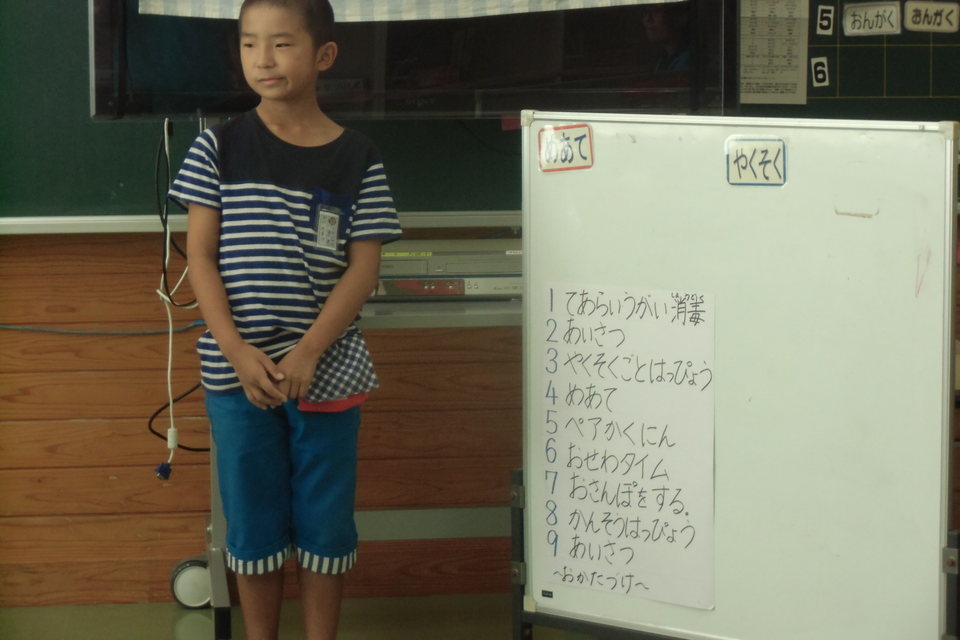 5 おんがく おんがく
6
めあて
やくそく
1 てあらいうがい消毒
2 あいさつ
3 やくそくごとはっぴょう
4 めあて
5 ペアかくにん
6 おせわタイム
7 おさんぽをする。
8 かんそうはっぴょう
9 あいさつ
～おかたづけ～